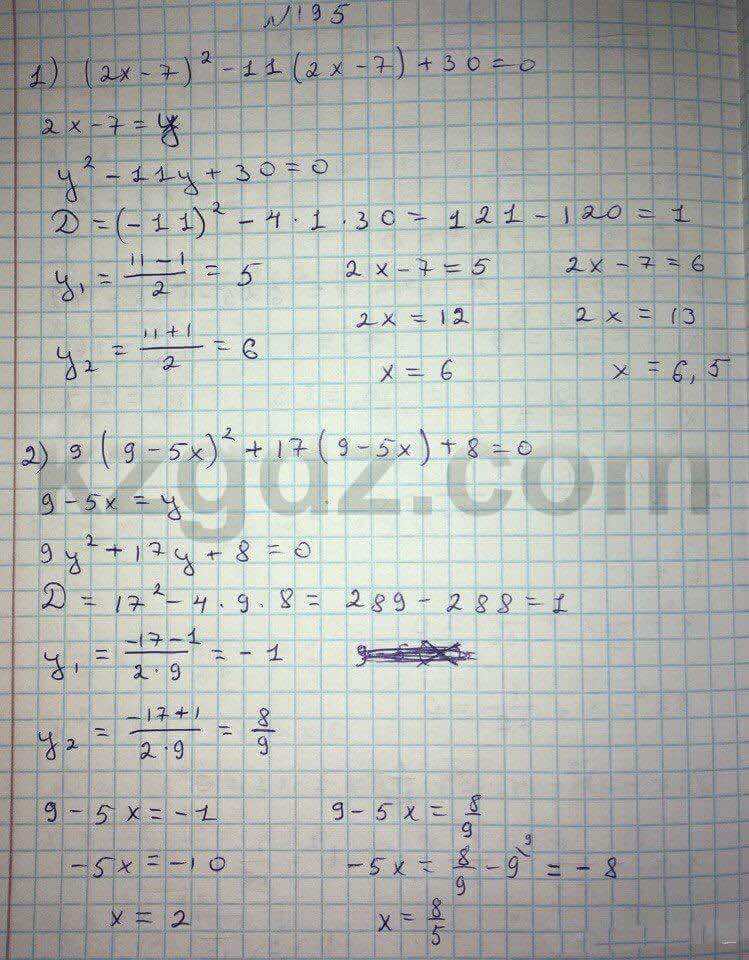 №195
1) (2x-7)² - 11(2x-7) + 30 = 0
2x-7 = y
y² - 11y + 30 = 0
D = (-11)² - 4·1·30 = 121 - 120 = 1
y₁ = (11-1)/2 = 5 2x-7 = 5 2x-7 = 6
2x = 12 2x = 13
y₂ = (11+1)/2 = 6 x = 6 x = 6,5
2) 9(9-5x)² + 17(9-5x) + 8 = 0
xzgdz.com
9-5x = y
9y² + 17y + 8 = 0
D = 17² - 4·9·8 = 289 - 288 = 1
y₁ = (-17-1)/(2·9) = -1
y₂ = (-17+1)/(2·9) = 8/9
9-5x = -1 9-5x = 8/9
-5x = -10 -5x = 8/9 - 9\9 = -8
x = 2 x = 8/5